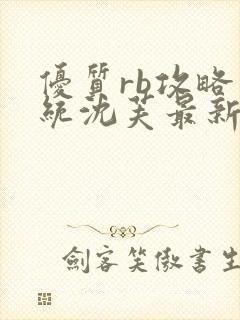 優質rb攻略
統沈芙最新
劍客笑傲書生